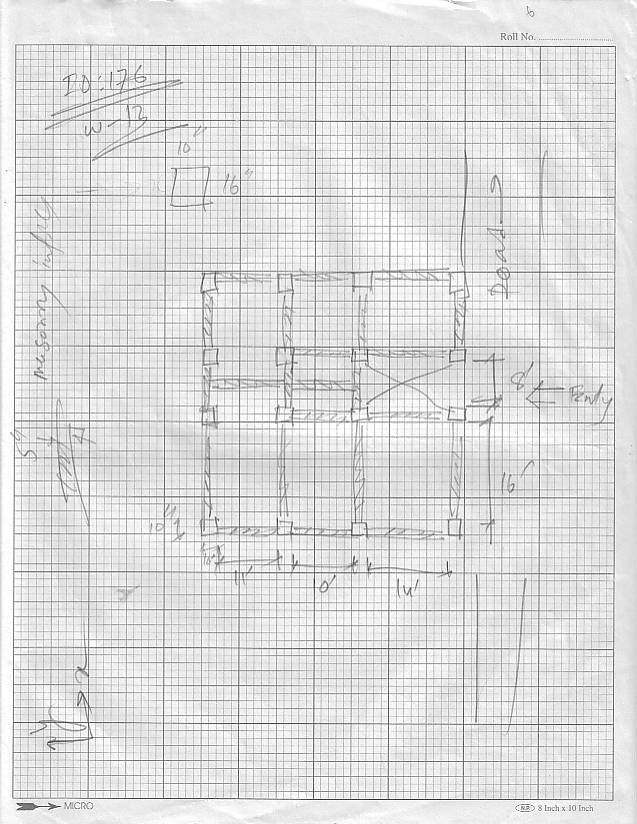 6
Roll No.
ID:176
W-13
10"
16"
masonry infill
5"
Road →
8'
16'
10"
10"
11'
10'
14'
x
y
MICRO
N.P. 8 Inch x 10 Inch